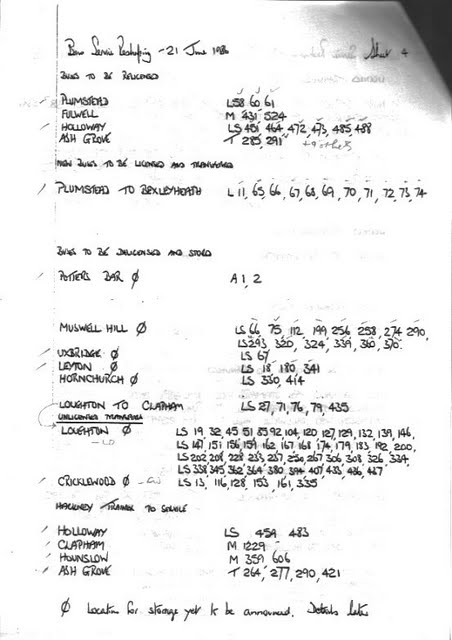 Service Reshaping - 21 June 198 Sheet 4
BUSES TO BE RELICENSED
PLUMSTEAD L58 60 61
FULWELL M 431, 524
HOLLOWAY LS 451, 464, 472, 473, 485, 488
ASH GROVE T 285, 291 + 9 others
NEW BUSES TO BE LICENSED AND TRANSFERRED
PLUMSTEAD TO BEXLEYHEATH L 11, 65, 66, 67, 68, 69, 70, 71, 72, 73, 74
BUSES TO BE DELICENSED AND STORED
POTTERS BAR Ø A 1, 2
MUSWELL HILL Ø LS 66, 75, 112, 199, 256, 258, 274, 290,
LS 293, 320, 324, 339, 360, 370.
UXBRIDGE Ø LS 67
LEYTON Ø LS 18, 180, 341
HORNCHURCH Ø LS 330, 414
LOUGHTON TO CLAPHAM LS 27, 71, 76, 79, 435
UNLICENSED TRANSFERS
LOUGHTON Ø LS 19, 32, 45, 51, 85, 92, 104, 120, 127, 129, 132, 139, 146,
- LD LS 147, 151, 156, 159, 162, 167, 168, 174, 179, 183, 192, 200,
LS 202, 208, 228, 233, 237, 250, 267, 306, 308, 326, 334,
LS 338, 345, 362, 364, 380, 394, 407, 433, 436, 437
CRICKLEWOOD Ø LS 13, 116, 128, 153, 161, 335
HACKNEY TRAINER TO SERVICE
HOLLOWAY LS 454, 483
CLAPHAM M 1229
HOUNSLOW M 359, 606
ASH GROVE T 264, 277, 290, 421
Ø Location for storage yet to be announced. Details later